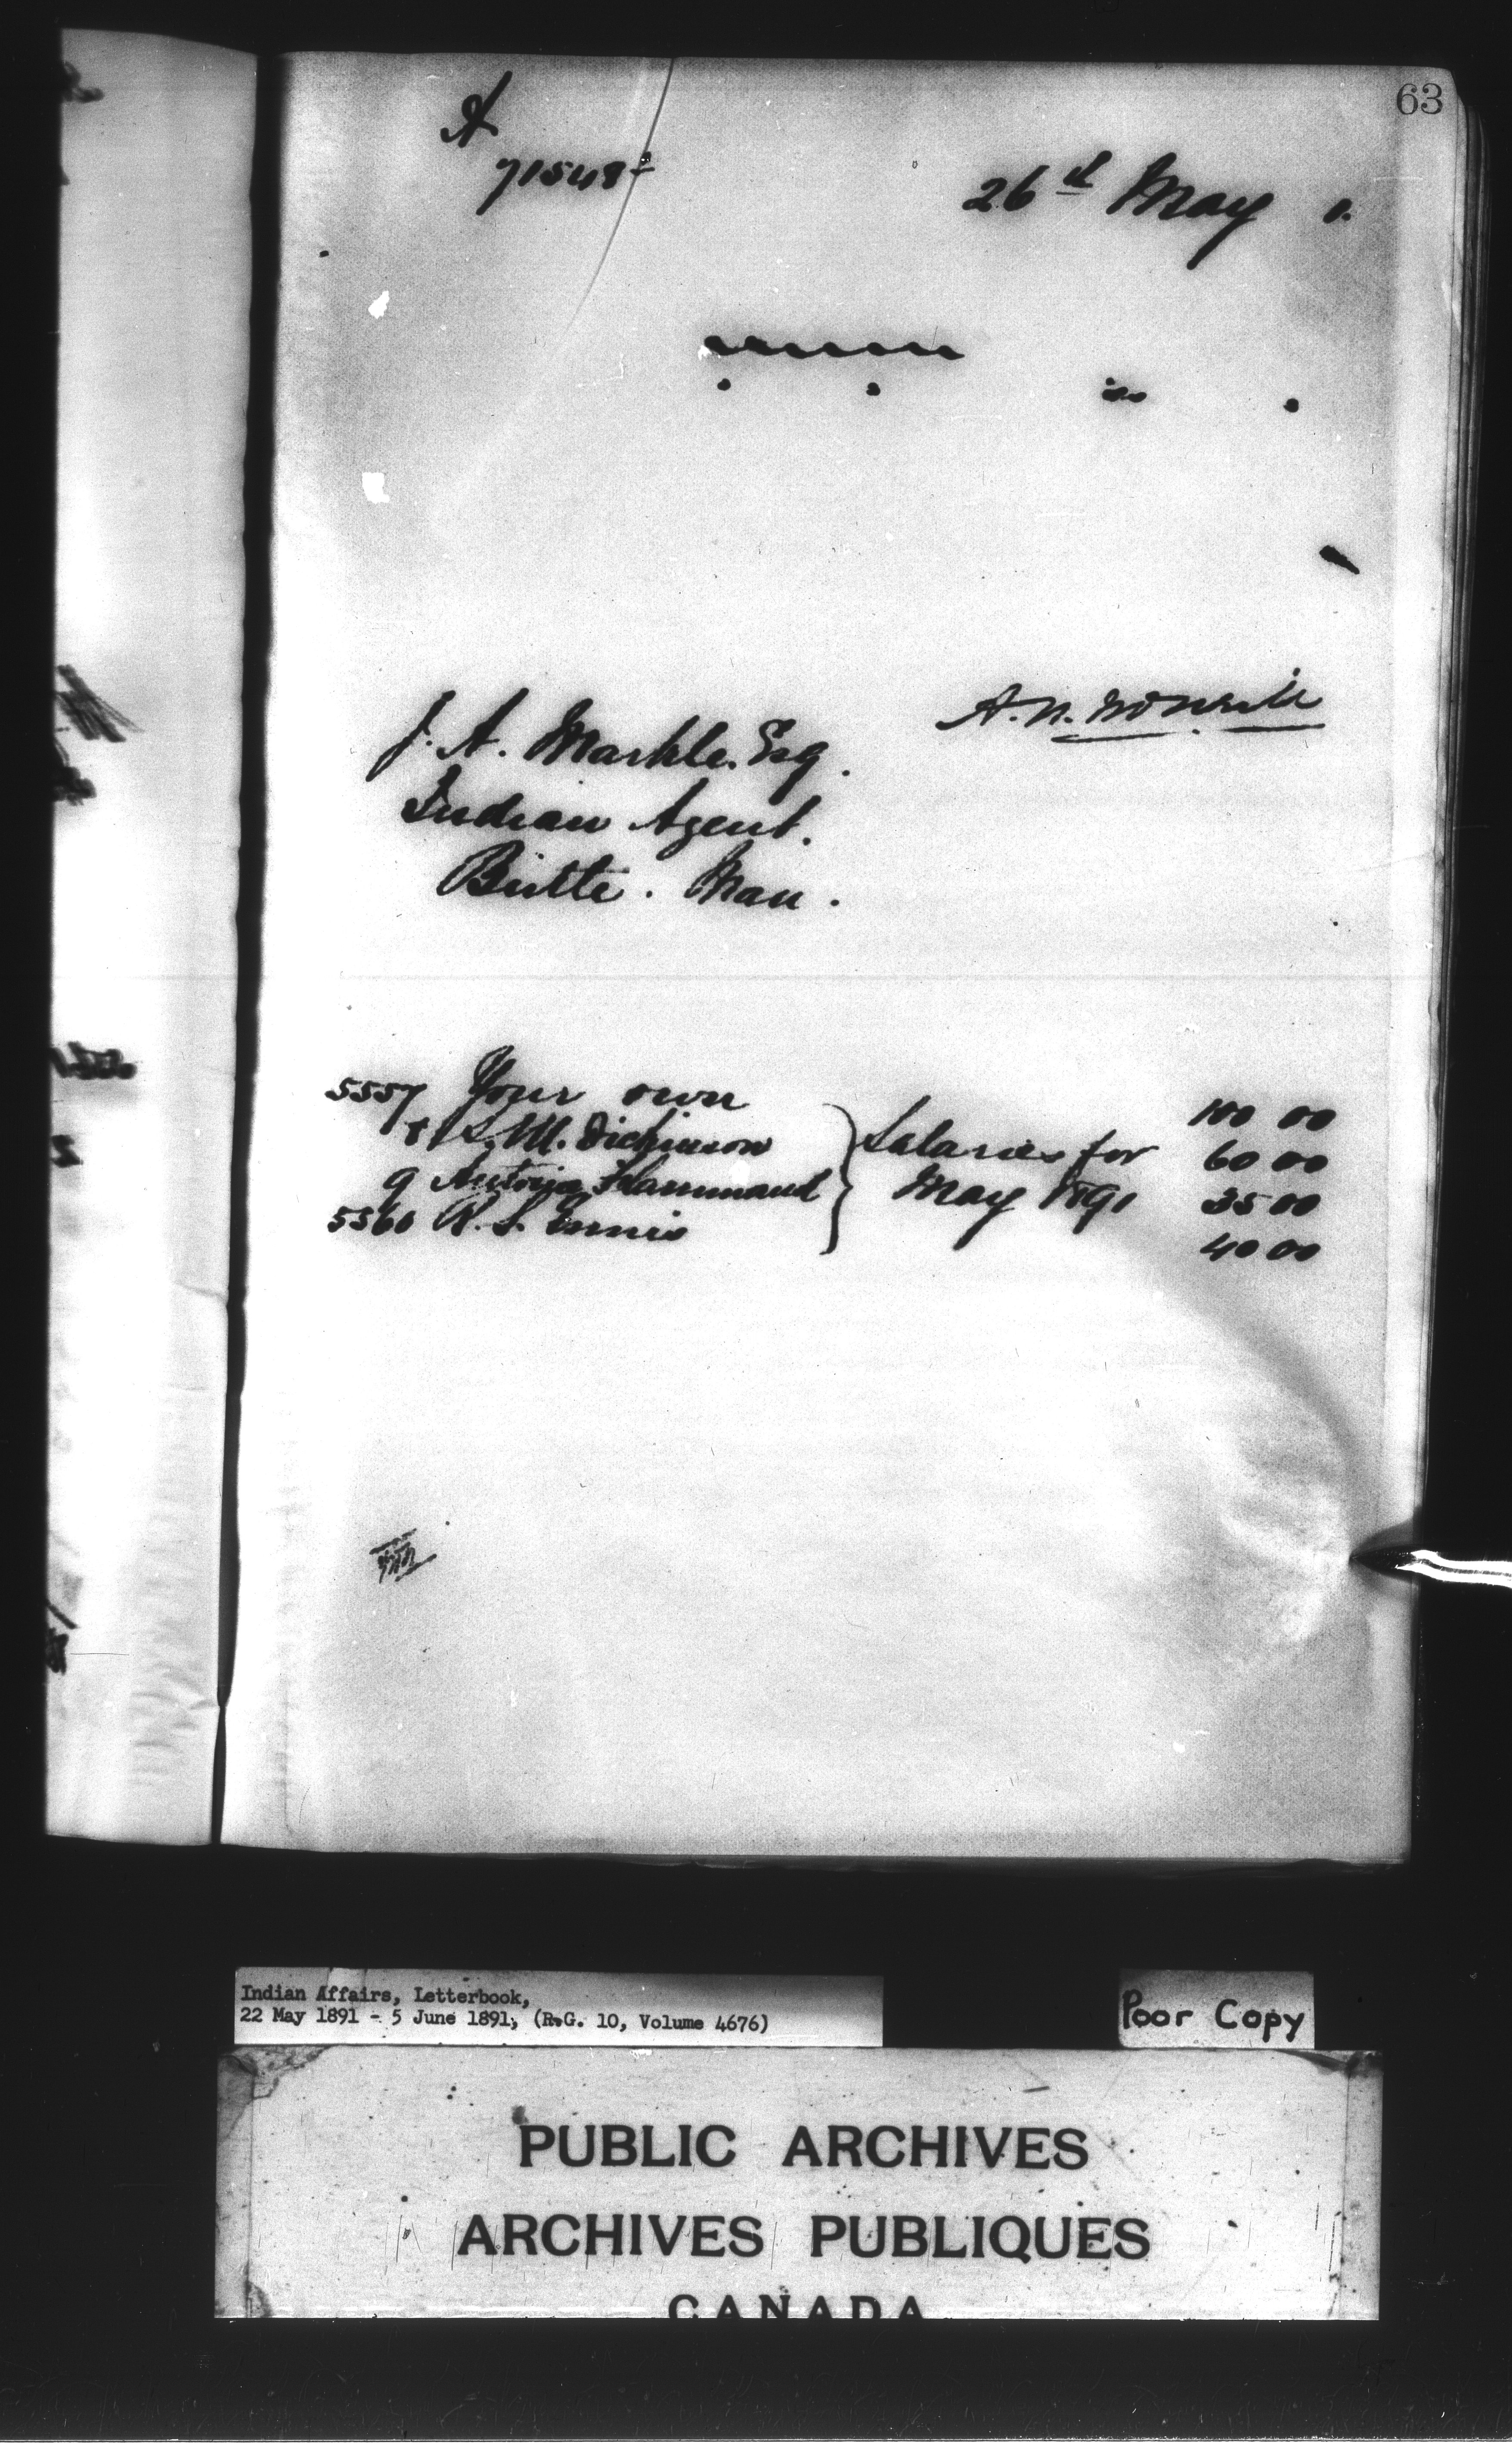 63
A
71548
26th May 1.
A. N. McNeill
J. A. Markle. Esq.
Indian Agent.
Birtle. Man.
5557 Your own 100 00
8 S. M. Dickinson } Salaries for 60 00
9 Antoija Hammand May 1891 35 00
5560 R. S. Ennis 40 00
Indian Affairs, Letterbook,
22 May 1891 - 5 June 1891, (R.G. 10, Volume 4676)
Poor Copy
PUBLIC ARCHIVES
ARCHIVES PUBLIQUES
CANADA